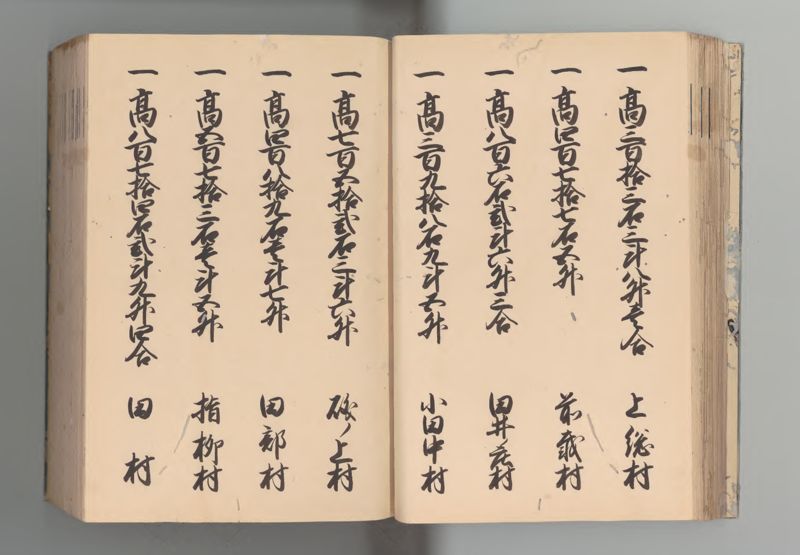 一 高三百拾三石三斗八升壱合 上総村
一 高四百七拾七石五升 前栽村
一 高八百六石弐斗六升三合 田井ノ庄村
一 高三百九拾八石九斗五升 小田中村
一 高七百五拾弐石三斗六升 礒ノ上村
一 高四百八拾九石壱斗七升 田部村
一 高五百七拾三石壱斗五升 指柳村
一 高八百七拾四石弐斗九升四合 田村